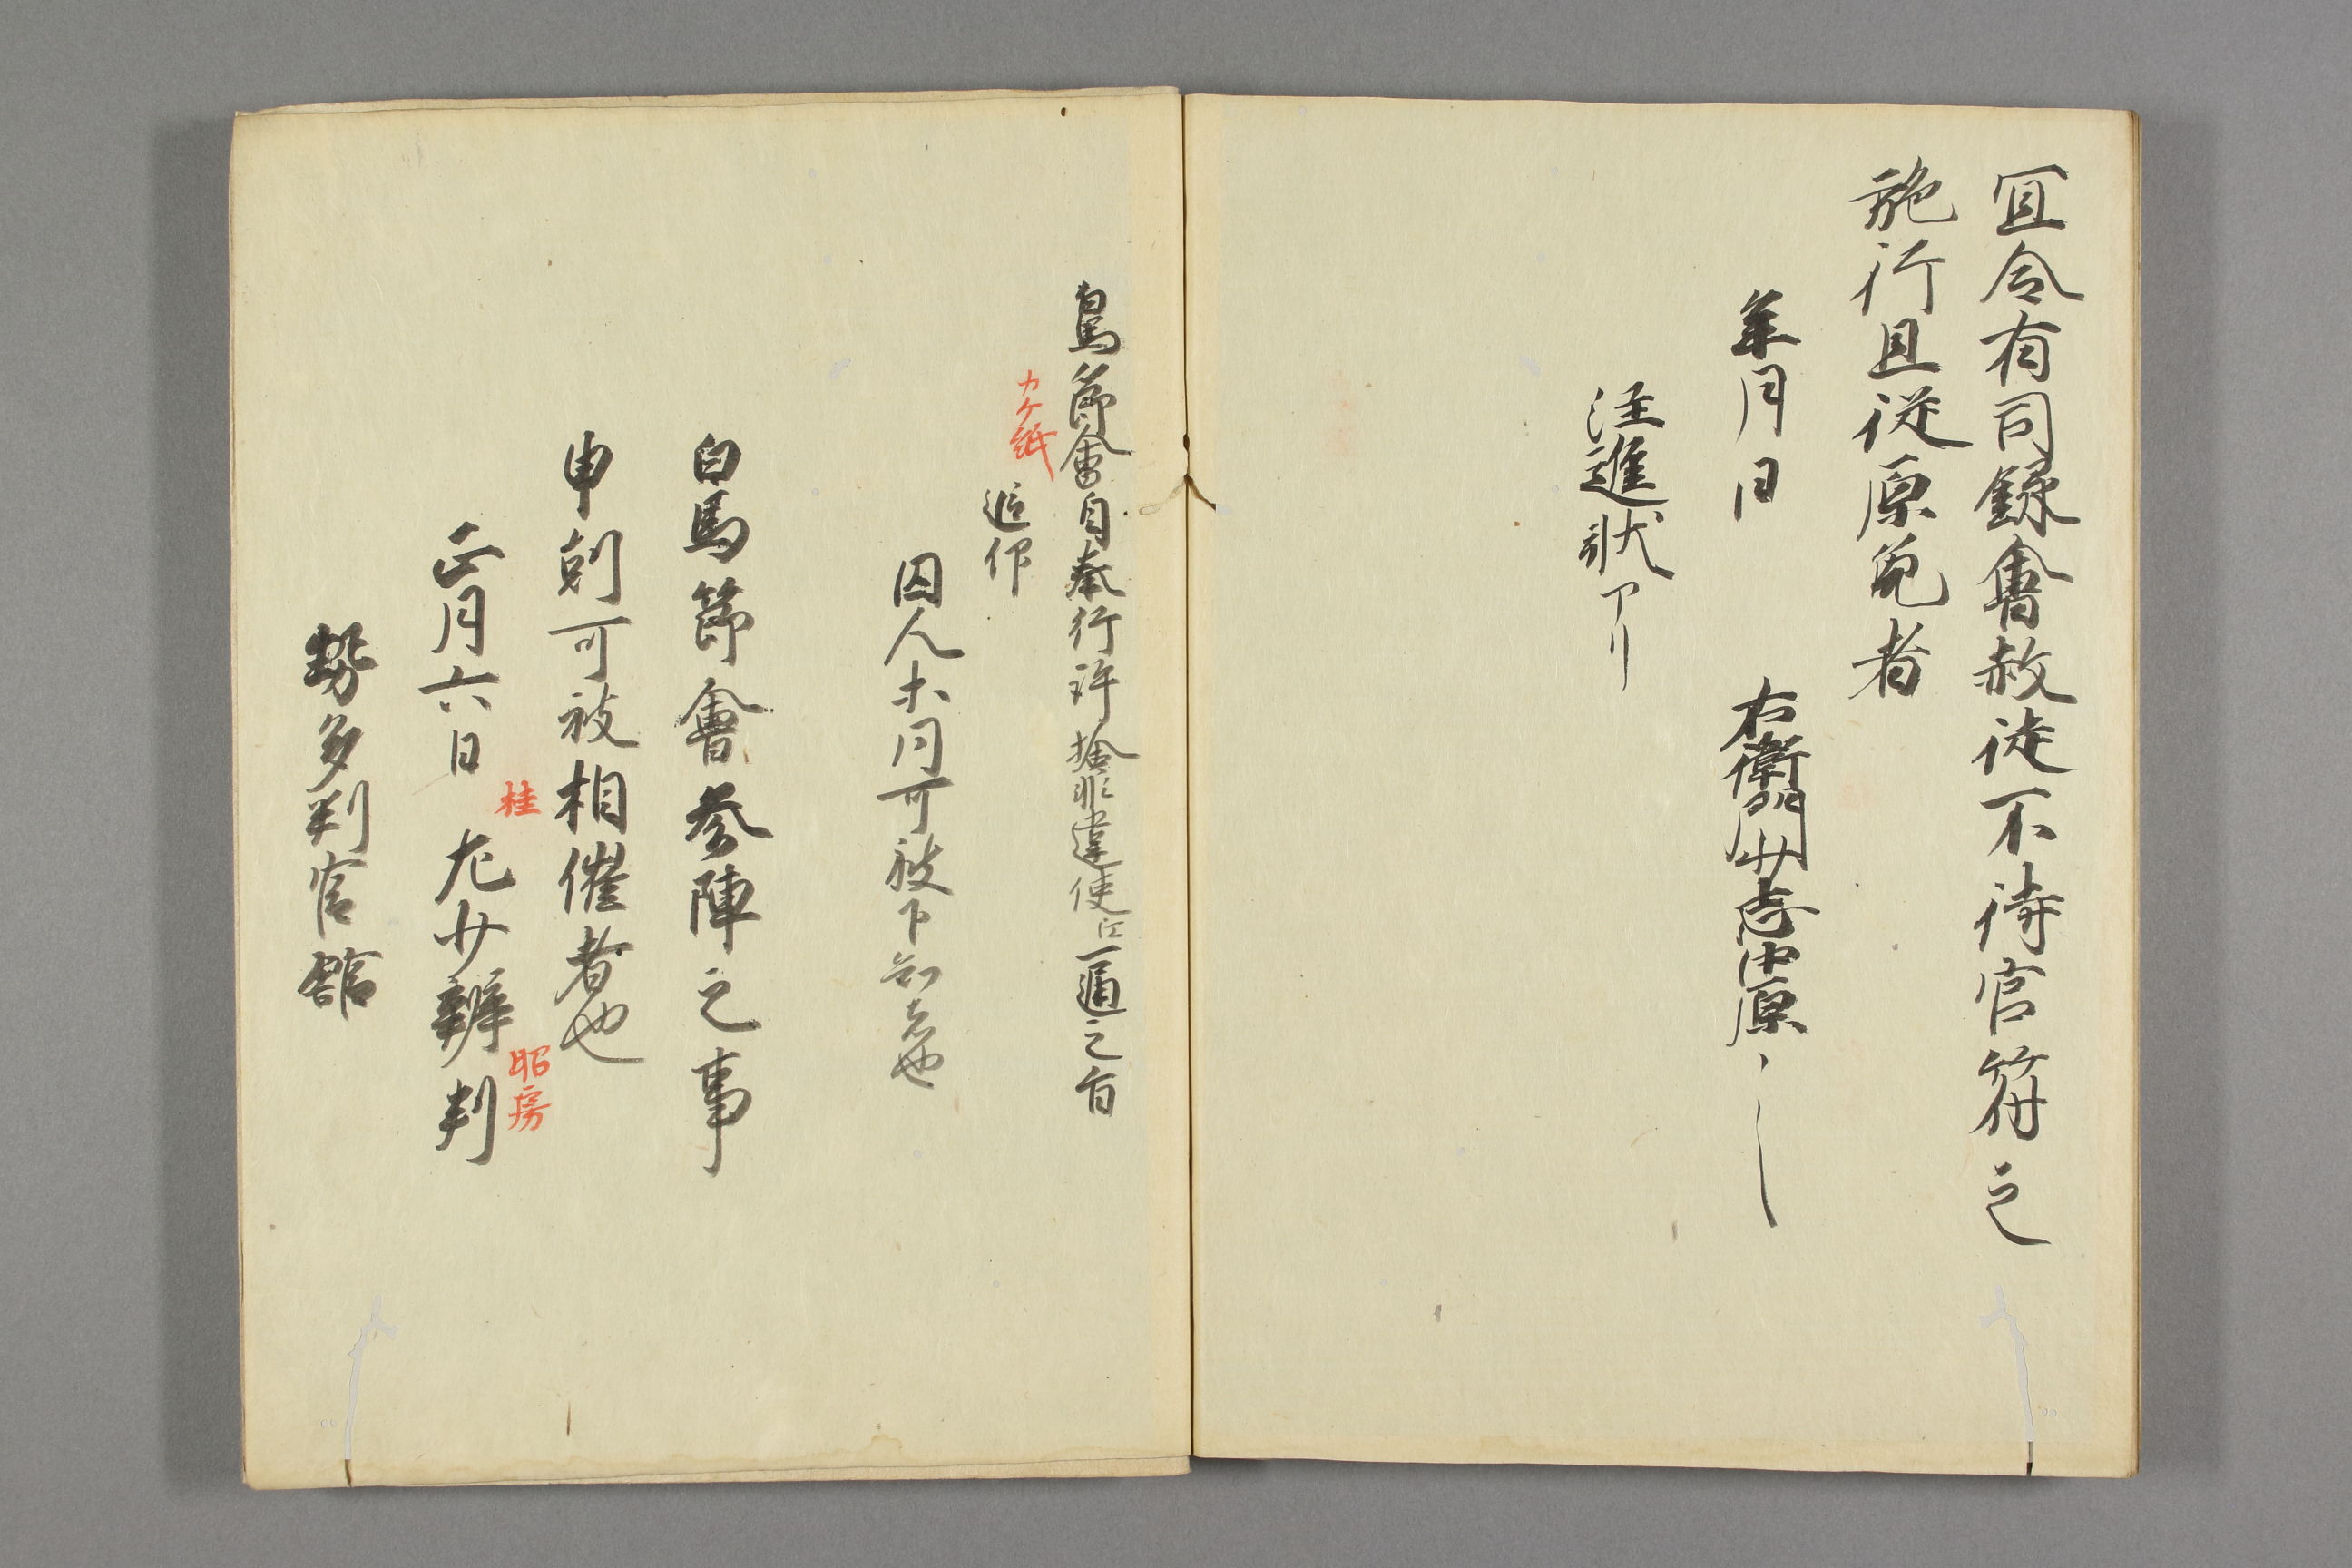 宜令有司録會赦徒不待官符之
施行且從原免者
年月日　右衛門少志中原〻
注進状アリ
白馬節會自奉行許撿非違使江一通之旨
カケ紙
追仰
囚人等同可被下知者也
白馬節會参陣之事
申剋可被相催者也
正月六日　左少辨判
桂
昭房
勢多判官舘